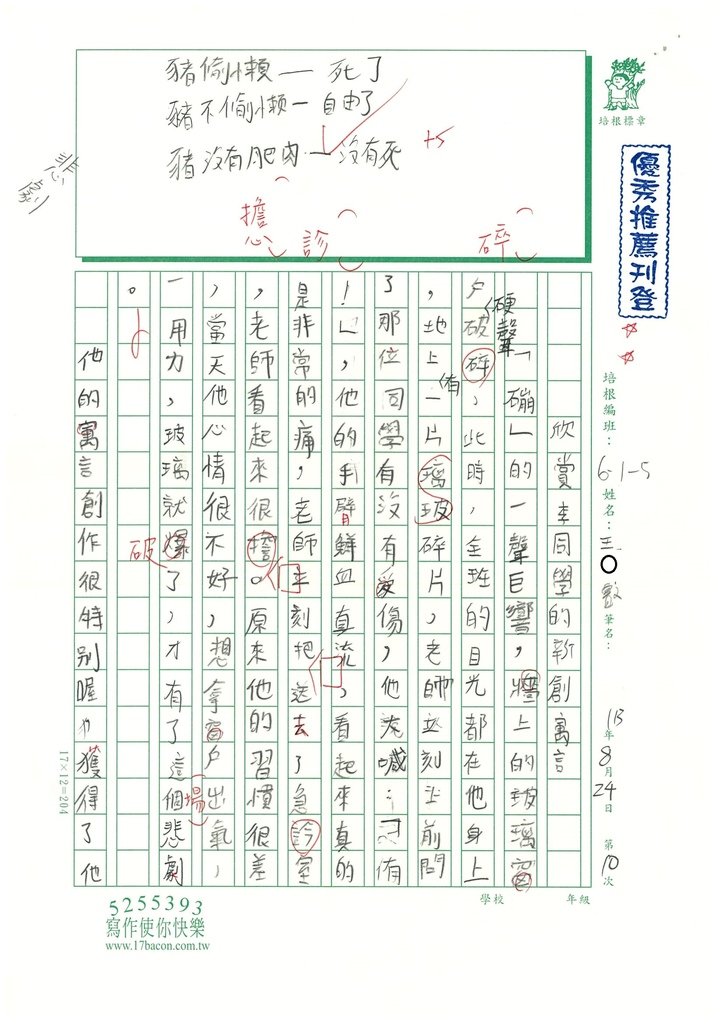 豬偷懶—死了
豬不偷懶—自由了
豬沒有肥肉—沒有死
+5
悲劇
擔心
診
碎
培根標章
優秀推薦刊登
培根編班：6-1-5 姓名：王○ 筆名：
113年8月24日 第10次
欣賞李同學的新創寓言
硬聲
「磞」的一聲巨響，牆上的玻璃窗
戶破碎，此時，全班的目光都在他身上
，地上有一片璃玻碎片，老師立刻上前問
了那位同學有沒有受傷，他大喊：「沒有
！」，他的手臂鮮血直流，看起來真的
是非常的痛，老師立刻把他送去了急診室
，老師看起來很擔心。原來他的習慣很差
，當天他心情很不好，想拿窗戶出氣，
一用力，玻璃就爆了，才有了這個悲劇
破
場
。
他的寓言創作很特別喔也獲得了他
17×12=204
學校 年級
5255393
寫作使你快樂
www.17bacon.com.tw